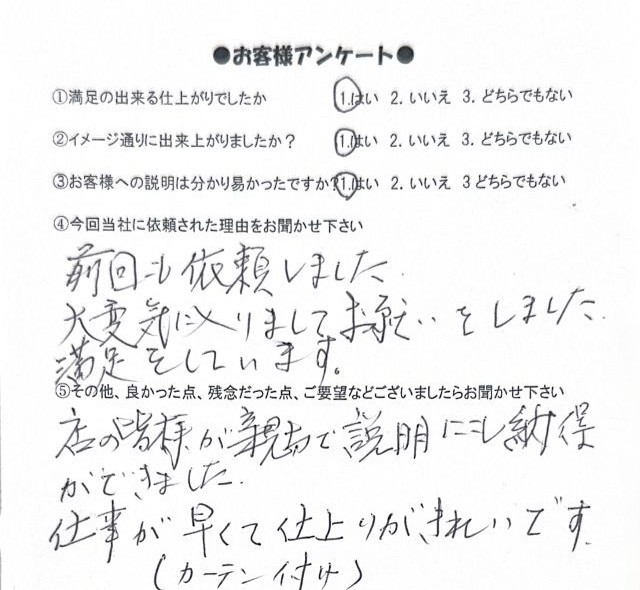 ●お客様アンケート●
①満足の出来る仕上がりでしたか 1.はい 2. いいえ 3. どちらでもない
②イメージ通りに出来上がりましたか？ 1.はい 2. いいえ 3. どちらでもない
③お客様への説明は分かり易かったですか？ 1.はい 2. いいえ 3 どちらでもない
④今回当社に依頼された理由をお聞かせ下さい
前回も依頼しました
大変気に入りましてお願いをしました
満足をしています。
⑤その他、良かった点、残念だった点、ご要望などございましたらお聞かせ下さい
店の皆様が親切で説明にも納得
ができました.
仕事が早くて仕上りがきれいです.
(カーテン付け)